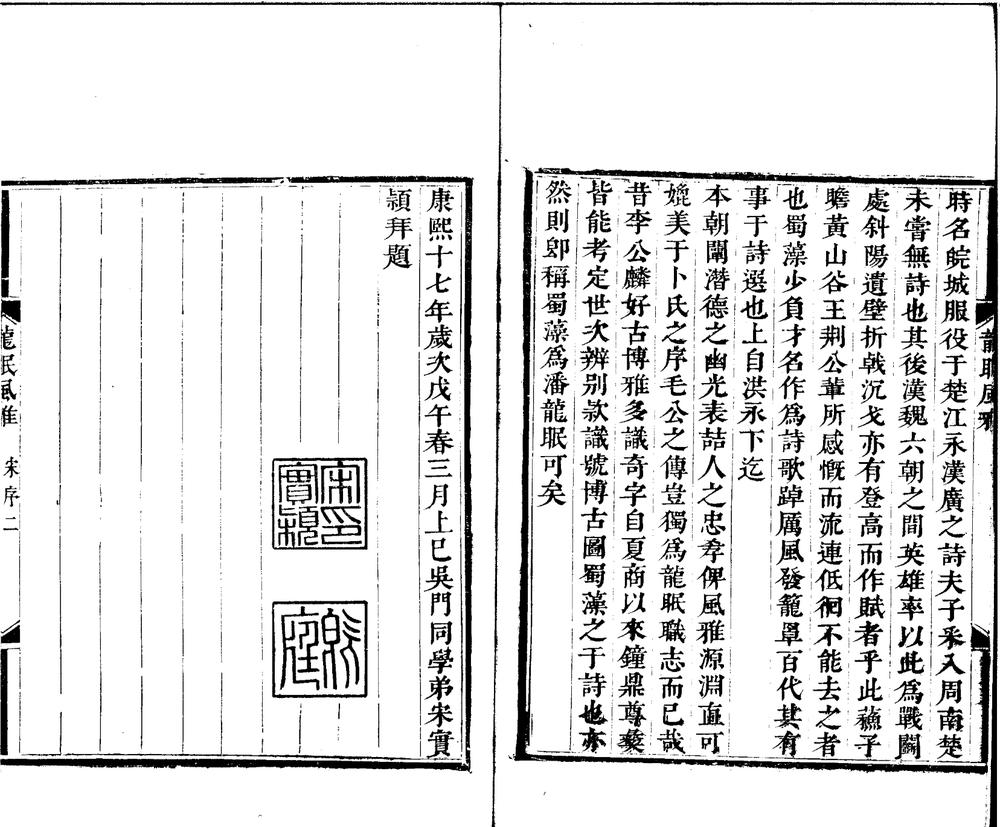 時名皖城服役于楚江永漢廣之詩夫子采入周南楚
未嘗無詩也其後漢魏六朝之間英雄率以此爲戰鬭
處斜陽遺壁折戟沉戈亦有登高而作賦者乎此蘓子
瞻黃山谷王荆公輩所感慨而流連低徊不能去之者
也蜀藻少負才名作爲詩歌踔厲風發籠罩百代其有
事于詩選也上自洪永下迄
本朝闡潛德之幽光表喆人之忠孝俾風雅源淵直可
媲美于卜氏之序毛公之傳豈獨爲龍眠職志而已哉
昔李公麟好古博雅多識奇字自夏商以來鐘鼎尊彝
皆能考定世次辨别款識號博古圖蜀藻之于詩也亦
然則卽稱蜀藻爲潘龍眠可矣
龍眠風雅
康熙十七年歲次戊午春三月上巳吳門同學弟宋實
頴拜題
宋印
實穎
龍眠風雅
宋序二